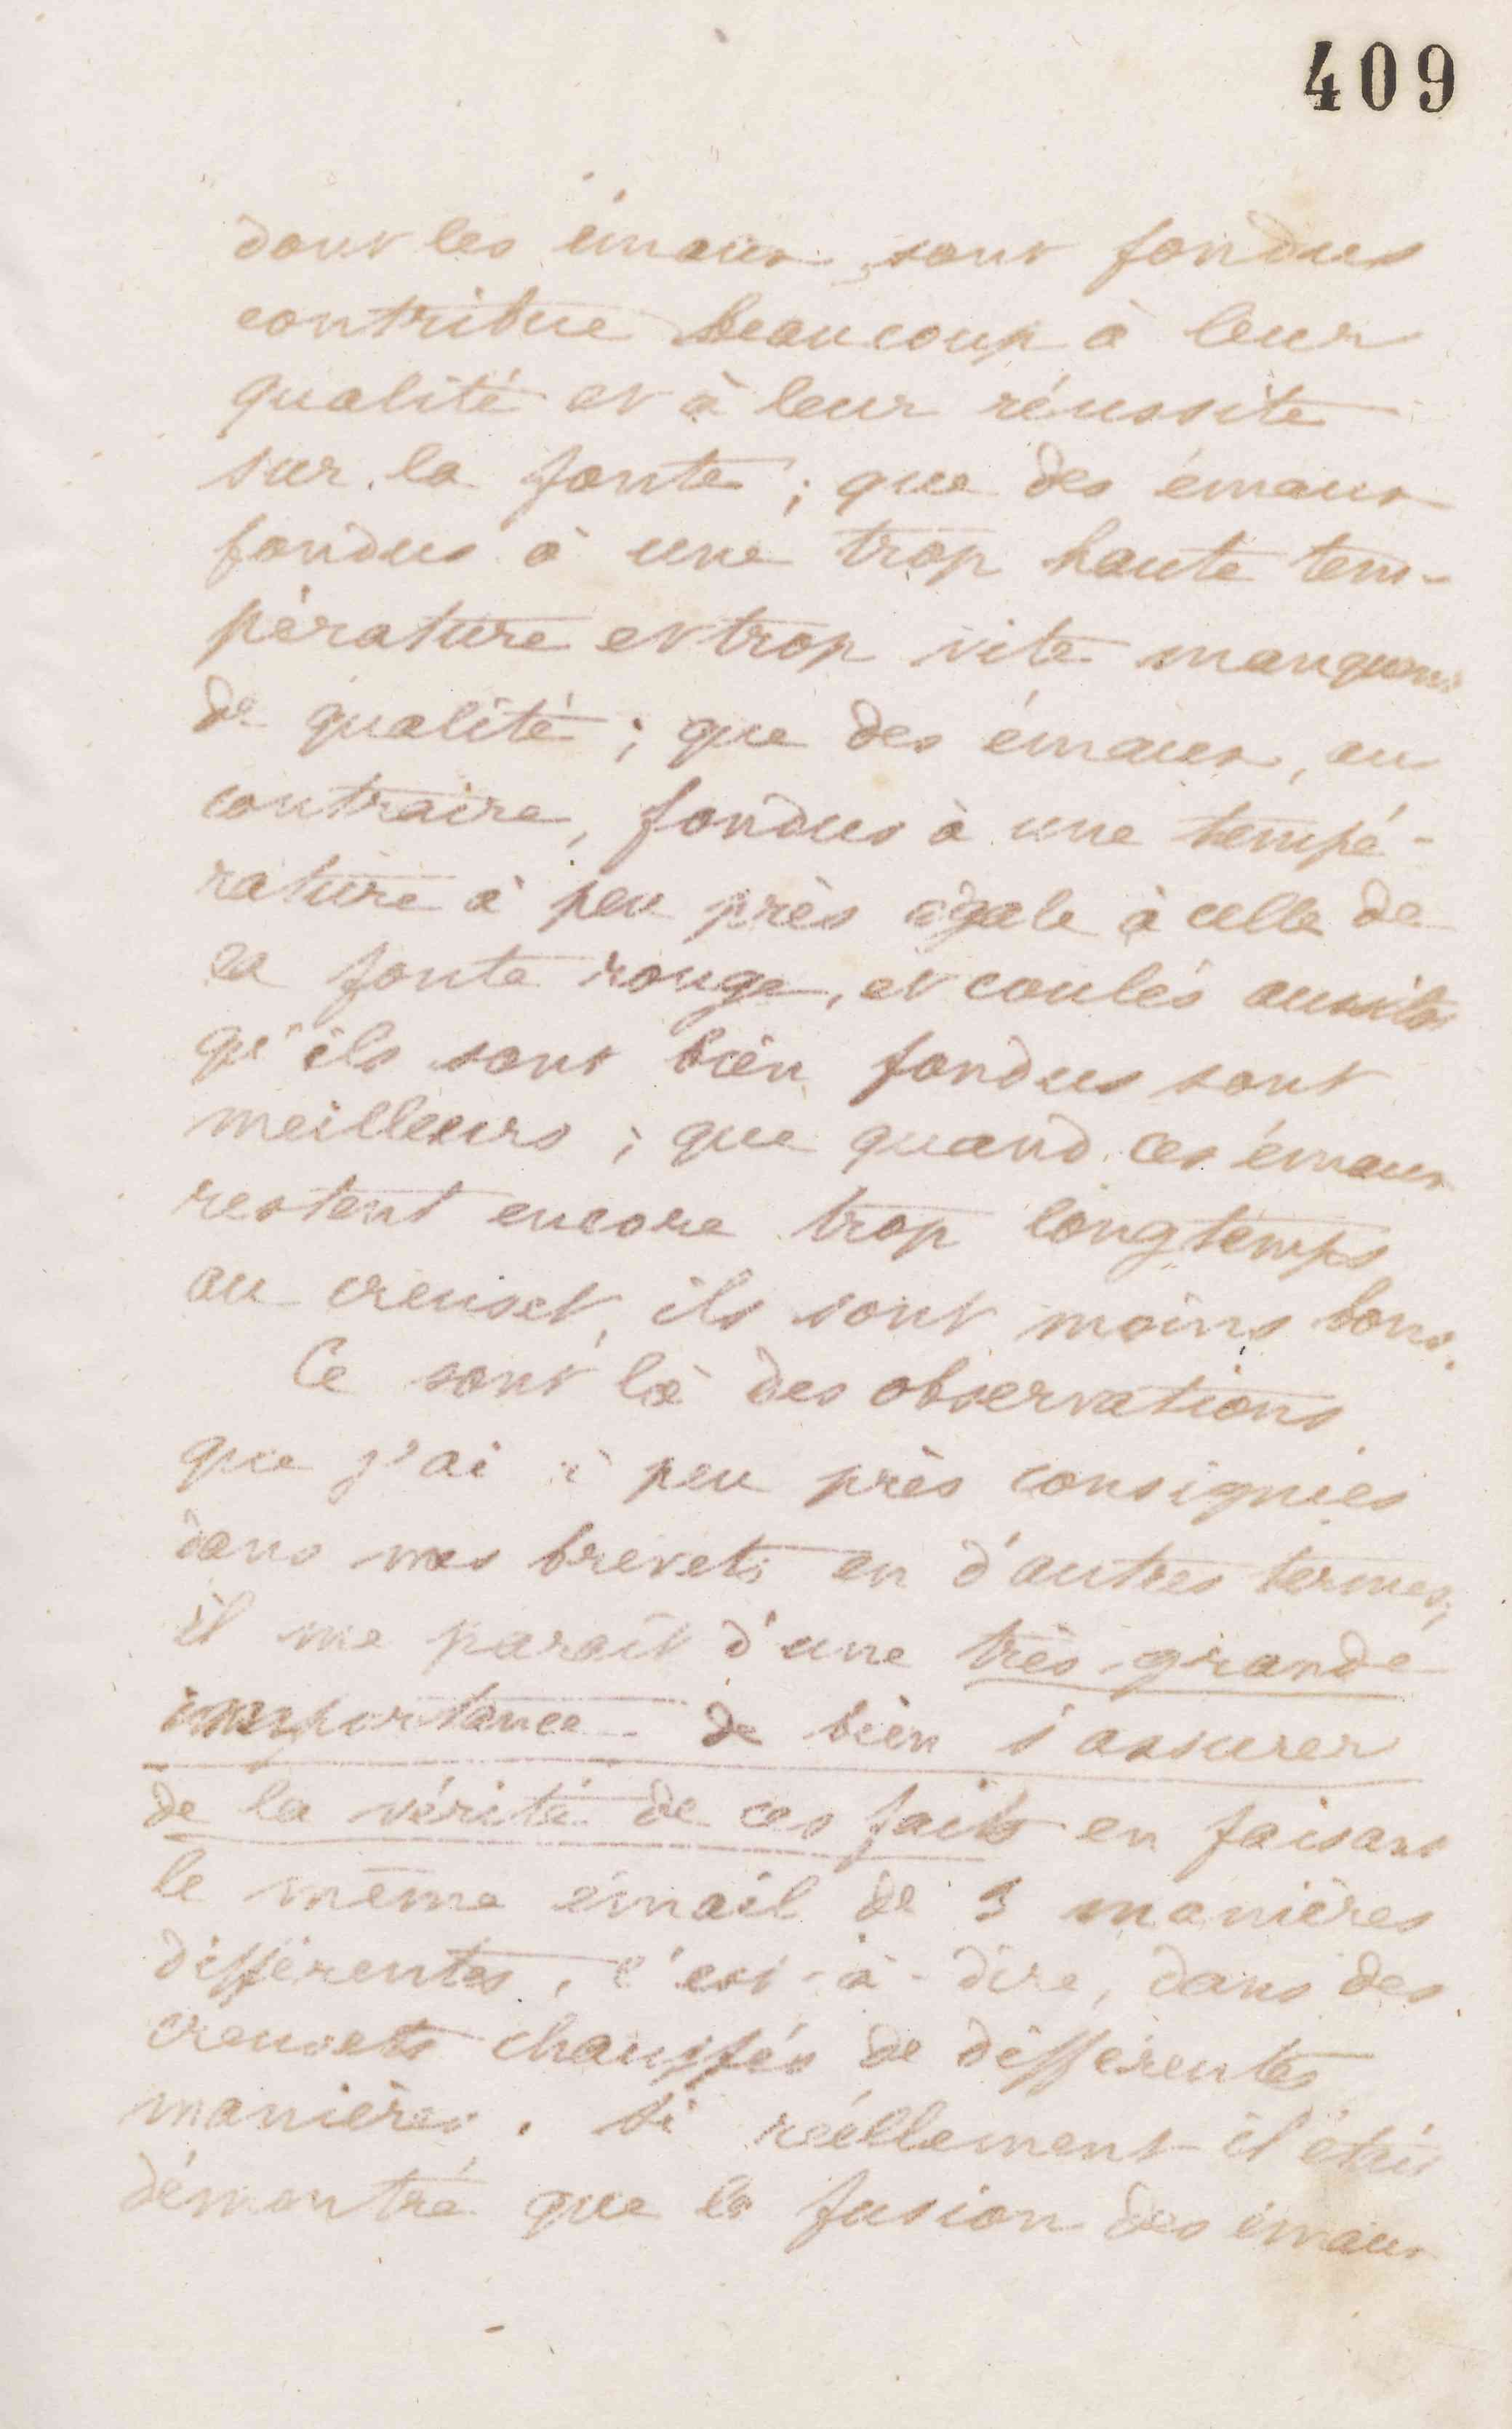 409
dont les émaux sont fondus
contribue beaucoup à leur
qualité et à leur réussite
sur la fonte ; que des émaux
fondus à une trop haute tem-
pérature et trop vite manquent
de qualité ; que des émaux, au
contraire, fondus à une tempé-
rature à peu près égale à celle de
la fonte rouge, et coulés aussitôt
qu'ils sont bien fondus sont
meilleurs ; que quand ces émaux
restent encore trop longtemps
au creuset, ils sont moins bons.
Ce sont là des observations
que j'ai à peu près consignées
dans mes brevets en d'autres termes ;
il me paraît d'une très grande
importance de bien s'assurer
de la vérité de ces faits en faisant
le même émail de 3 manières
différentes, c'est-à-dire, dans des
creusets chauffés de différentes
manières. Si réellement il était
démontré que la fusion des émaux